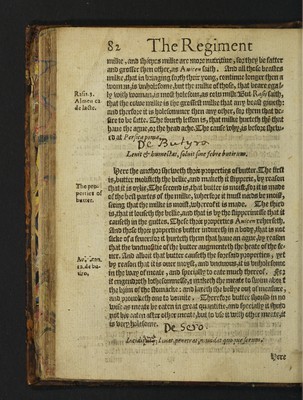 82 The Regiment
milke, and shepes milke are more nutritiue, for they be fatter
and grosser then other, as Auicen saith. And all these beastes
milke, that in bringing forth their yong, continue longer then a
woman, is unholsome, but the milke of those, that beare egal-
ly with woman, is most holsom, as cow milk. But Rasis saith,
Rasis.3. Almen ca de lacte.
that the cowe milke is the grossest milke that any beast giueth:
and therfore it is holesommer then any other, for them that de-
sire to be fatte. The fourth lesson is, that milke hurteth them that
haue the ague, or the head ache. The cause why, is before shew-
ed at Persica poma.
De Butyro
Lenit & humectat, soluit sine febre butirum.
Here the auctor sheweth thre properties of butter. The first
is, butter mollifieth the bellie, and maketh it slippery, by reason
The pro- perties of butter.
that it is oylie. The second is, that butter is moist, for it is made
of the best partes of the milke, wherfore it must nedes be moist,
seing that the milke is moist, wherof it is made. The third
is, that it louseth the bellie, and that is by the slipperinesse that it
causeth in the guttes. These thre properties Auicen reherseth.
And these thre properties butter induceth in a body, that is not
sicke of a feuer, for it hurteth them that haue an ague, by reason
that the unctuositie of the butter augmenteth the heate of the fe-
uer. And albeit that butter causeth the foresaid properties, yet
by reason that it is ouer moyst, and unctuous, it is unholsome
in the way of meate, and specially to eate much therof. For
it engendreth lothsomnesse,
and prouoketh one to vomite. Therfore butter should in no
wise as meate be eaten in great quantitie, and specially it should
not be eaten after other meate, but to use it with other meate, it
is very holesome.
De Sero
Incidit que, lauat, penetrat, mundat quoque serum.
Here